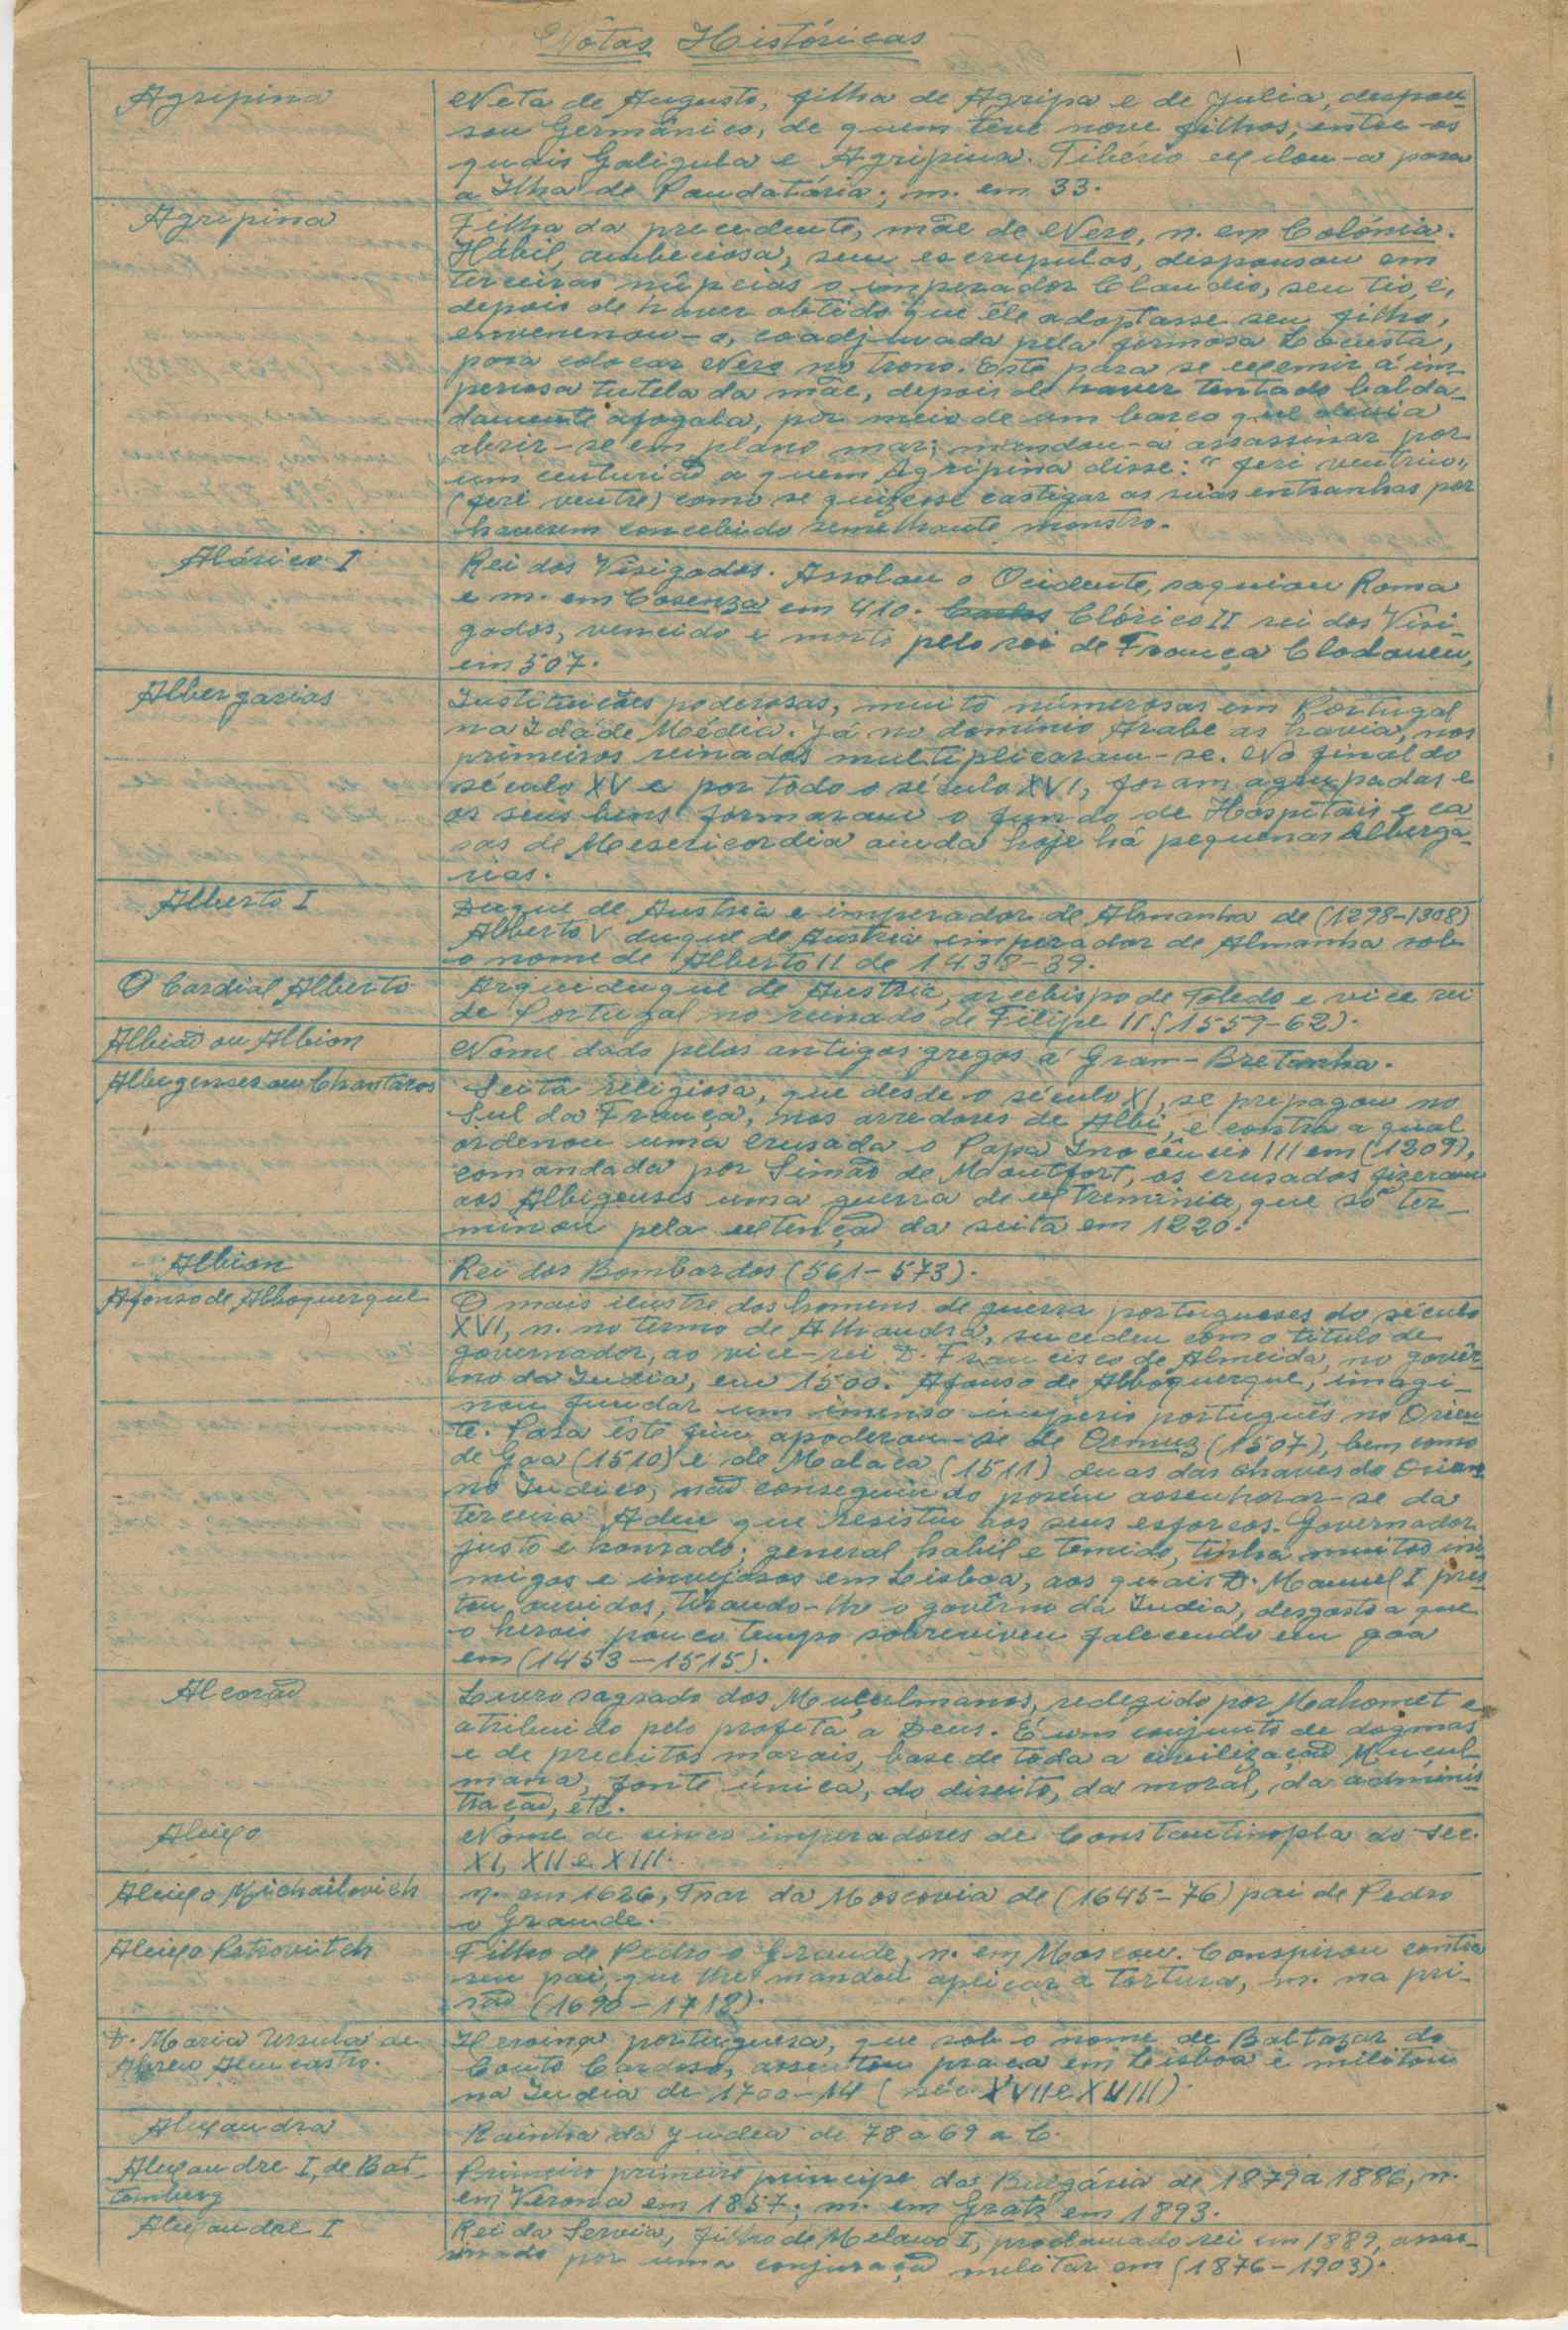 Nôtas Históricas
Agripina
Neta de Augusto, filha de Agripa e de Julia, despou-
sou Germânico, de quem têve nove filhos, entre os
quais Galigula e Agripina. Tibério exilou-a para
a Ilha de Pandatária; m. em 33.
Agripina
Filha da precedente, mãe de Nero, n. em Colónia.
Hábil, ambeciosa, sem escrupulos, despousou em
terceiras núpcias o imperador Claudio, seu tio, e,
depois de haver obtido que êle adoptasse seu filho,
envenenou-o, coadjuvada pela formosa Locusta,
para colocar Nero no trono. Este para se eximir á im-
periosa tutela da mãe, depois de haver tentado balda-
damente afogala, por meio de um barco que devia
abrir-se em plano mar; mandou-a assassinar por
um centurião a quem Agripina disse: "feri ventrium"
(feri ventre) como se quizesse castigar as suas entranhas por
haverem concebido semelhante monstro.
Alárico I
Rei dos Visigodos. Assolou o Ocidente, saquiou Roma
e m. em Cosenza em 410. Clórico II rei dos Visi-
godos, vencido e morto pelo rei de França Clodoveu,
em 507.
Albergarias
Instituições poderosas, muito númerosas em Portugal
na Idade Média. Já no domínio Arabe as havia, nos
primeiros reinados multiplicaram-se. No final do
século XV e por todo o século XVI, foram agrupadas e
os seus bens formaram o fundo de Hospitais e ca
sas de Mesericordia ainda hoje há pequenas Alberga-
rias.
Alberto I
Duque de Austria e imperador de Almanha de (1298-1308)
Alberto V duque de Austria imperador de Almanha sob
o nome de Alberto II de 1438-39.
O Cardial Alberto
Arquiduque de Austria, arcebispo de Toledo e vice rei
de Portugal no reinado de Filipe II. (1559-62).
Albião ou Albion
Nome dado pelos antigos gregos á Gram-Bretanha.
Albugenses ou Chantaros
Seita religiosa, que desde o século XI, se propagou no
Sul da França, nos arredores de Albi, e contra a qual
ordenou uma crusada o Papa Inocêncio III em (1209),
comandada por Simão de Montfort, os crusados fizeram
aos Albigenses uma guerra de extreminio, que só ter-
minou pela extenção da seita em 1220.
Albion
Rei dos Bombardos (561-573).
Afonso de Alboquerque
O mais ilustre dos homens de guerra portugueses do século
XVI, n. no termo de Alhandra, sucedeu com o titulo de
governador, ao vice-rei D. Francisco de Almeida, no govêr-
no da India, em 1500. Afonso de Alboquerque, imagi-
nou fundar um imenso imperio português no Orien
te. Para êste fim apoderou-se de Ormuz (1507), bem como
de Goa (1510) e de Malaca (1511) duas das chaves do Orien
no Indico, não conseguindo porém assenhorar-se da
terceira Aden que resistiu aos seus esforços. Governador
justo e honrado; general habil e temido, tinha muitos ini-
migos e invejosos em Lisboa, aos quais D. Manuel I pres-
tou ouvidos, tirando-lhe o govêrno da India, desgosto a que
o herois pouco tempo sobreviveu falecendo em goa
em (1453-1515).
Alcorão
Livro sagrado dos Muçulmanos, redegido por Mahomet e
atribuido pelo profeta a Deus. E um conjunto de dogmas
e de preceitos morais, base de toda a civilização Muçul-
mana, fonte única, do direito, da moral, da adminis
tração, etc.
Aleixo
Nome de cinco imperadores de Constantinopla do sec.
XI, XII e XIII.
Aleixo Michailovich
n. em 1626, Tzar da Moscovia de (1645-76) pai de Pedro
o Grande.
Aleixo Petrovitch
Filho de Pedro o Grande, n. em Moscow. Conspirou contra
seu pai, que lhe mandou aplicar a tortura, m. na pri-
são (1690-1718).
D. Maria Ursula de
Abreu Alencastro.
Heroina portuguesa, que sob o nome de Baltazar do
Couto Cardoso, assentou praça em Lisboa e militou
na India de 1700-14 (séc. XVII e XVIII).
Alexandra
Rainha da Judea de 78 a 69 a C.
Alexandre I, de Bat-
temberg
Primeiro primeiro principe da Bulgária de 1879 a 1886, n.
em Verona em 1857; m. em Gratz em 1893.
Alexandre I
Rei da Servia, filho de Melano I, proclamado rei em 1889, assas-
sinado por uma conjuração militar em (1876-1903).